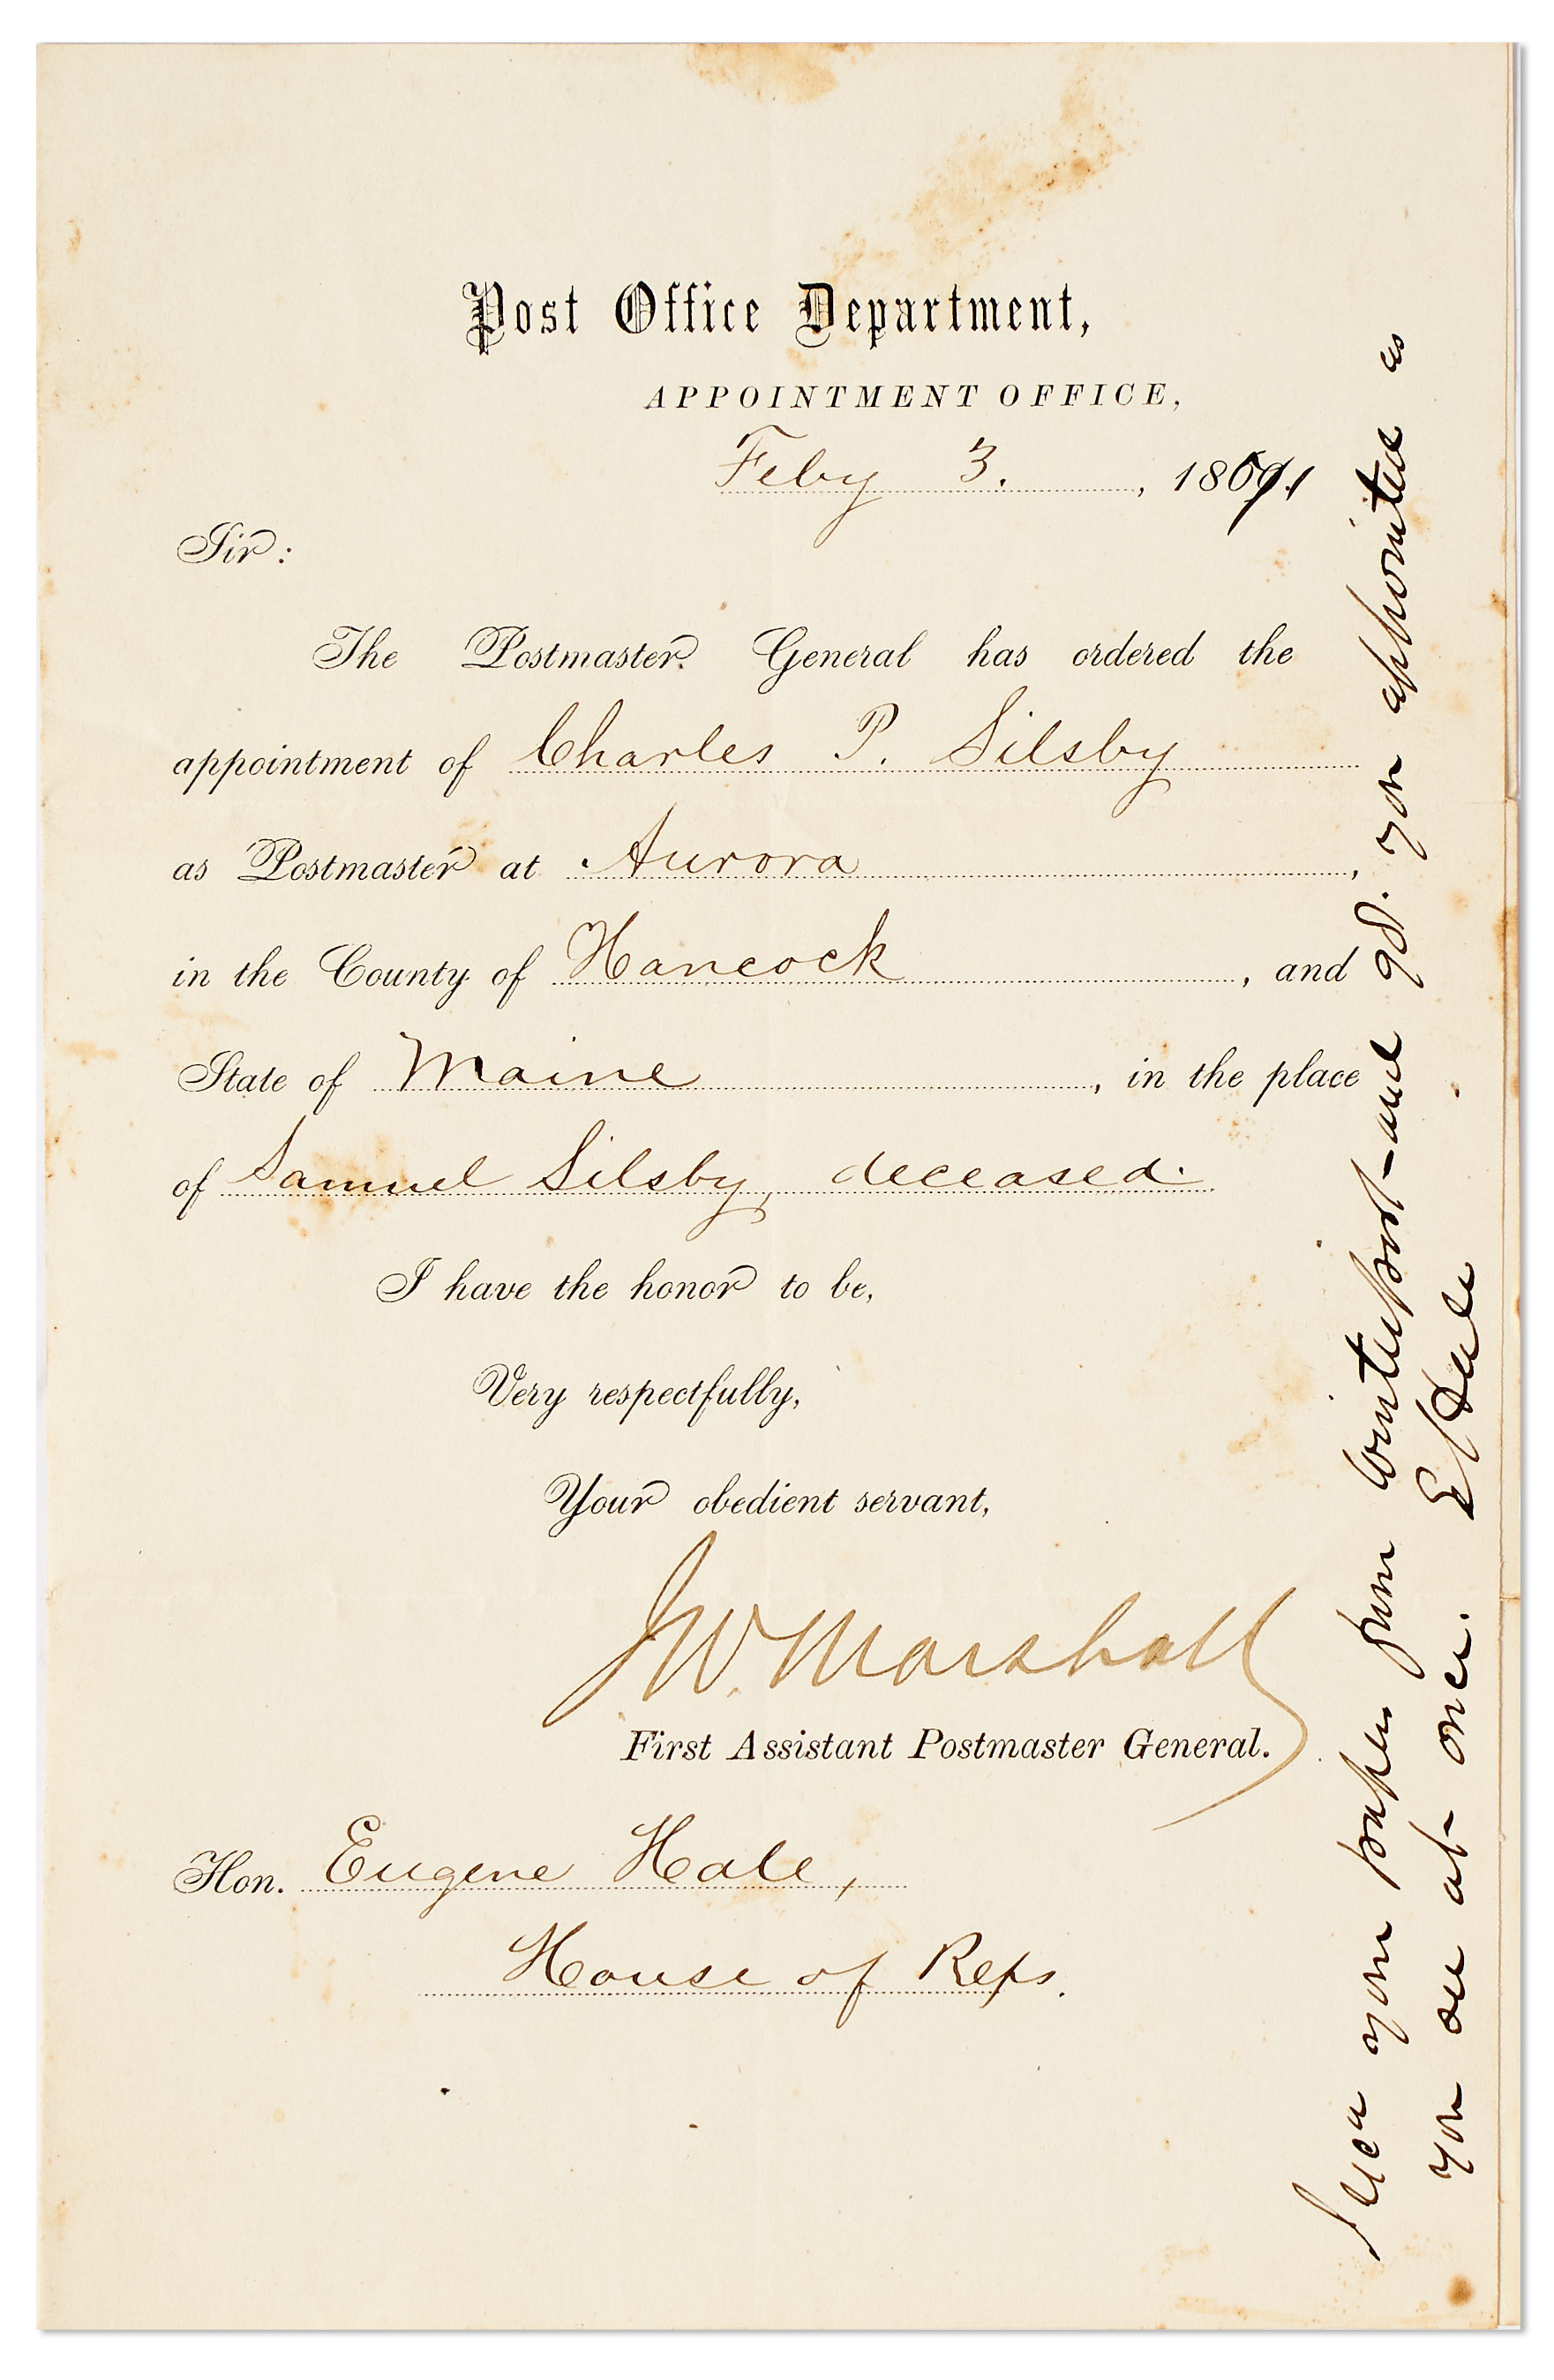 Post Office Department,
APPOINTMENT OFFICE,
Feby 3. , 1871
Sir:
The Postmaster General has ordered the
appointment of Charles P. Silsby
as Postmaster at Aurora,
in the County of Hancock, and
State of Maine, in the place
of Samuel Silsby, deceased.
I have the honor to be,
Very respectfully,
Your obedient servant,
J.W. Marshall
First Assistant Postmaster General.
Hon. Eugene Hale,
House of Reps.
your papers from Winterport - and you appointed as
you see at once. E Hale